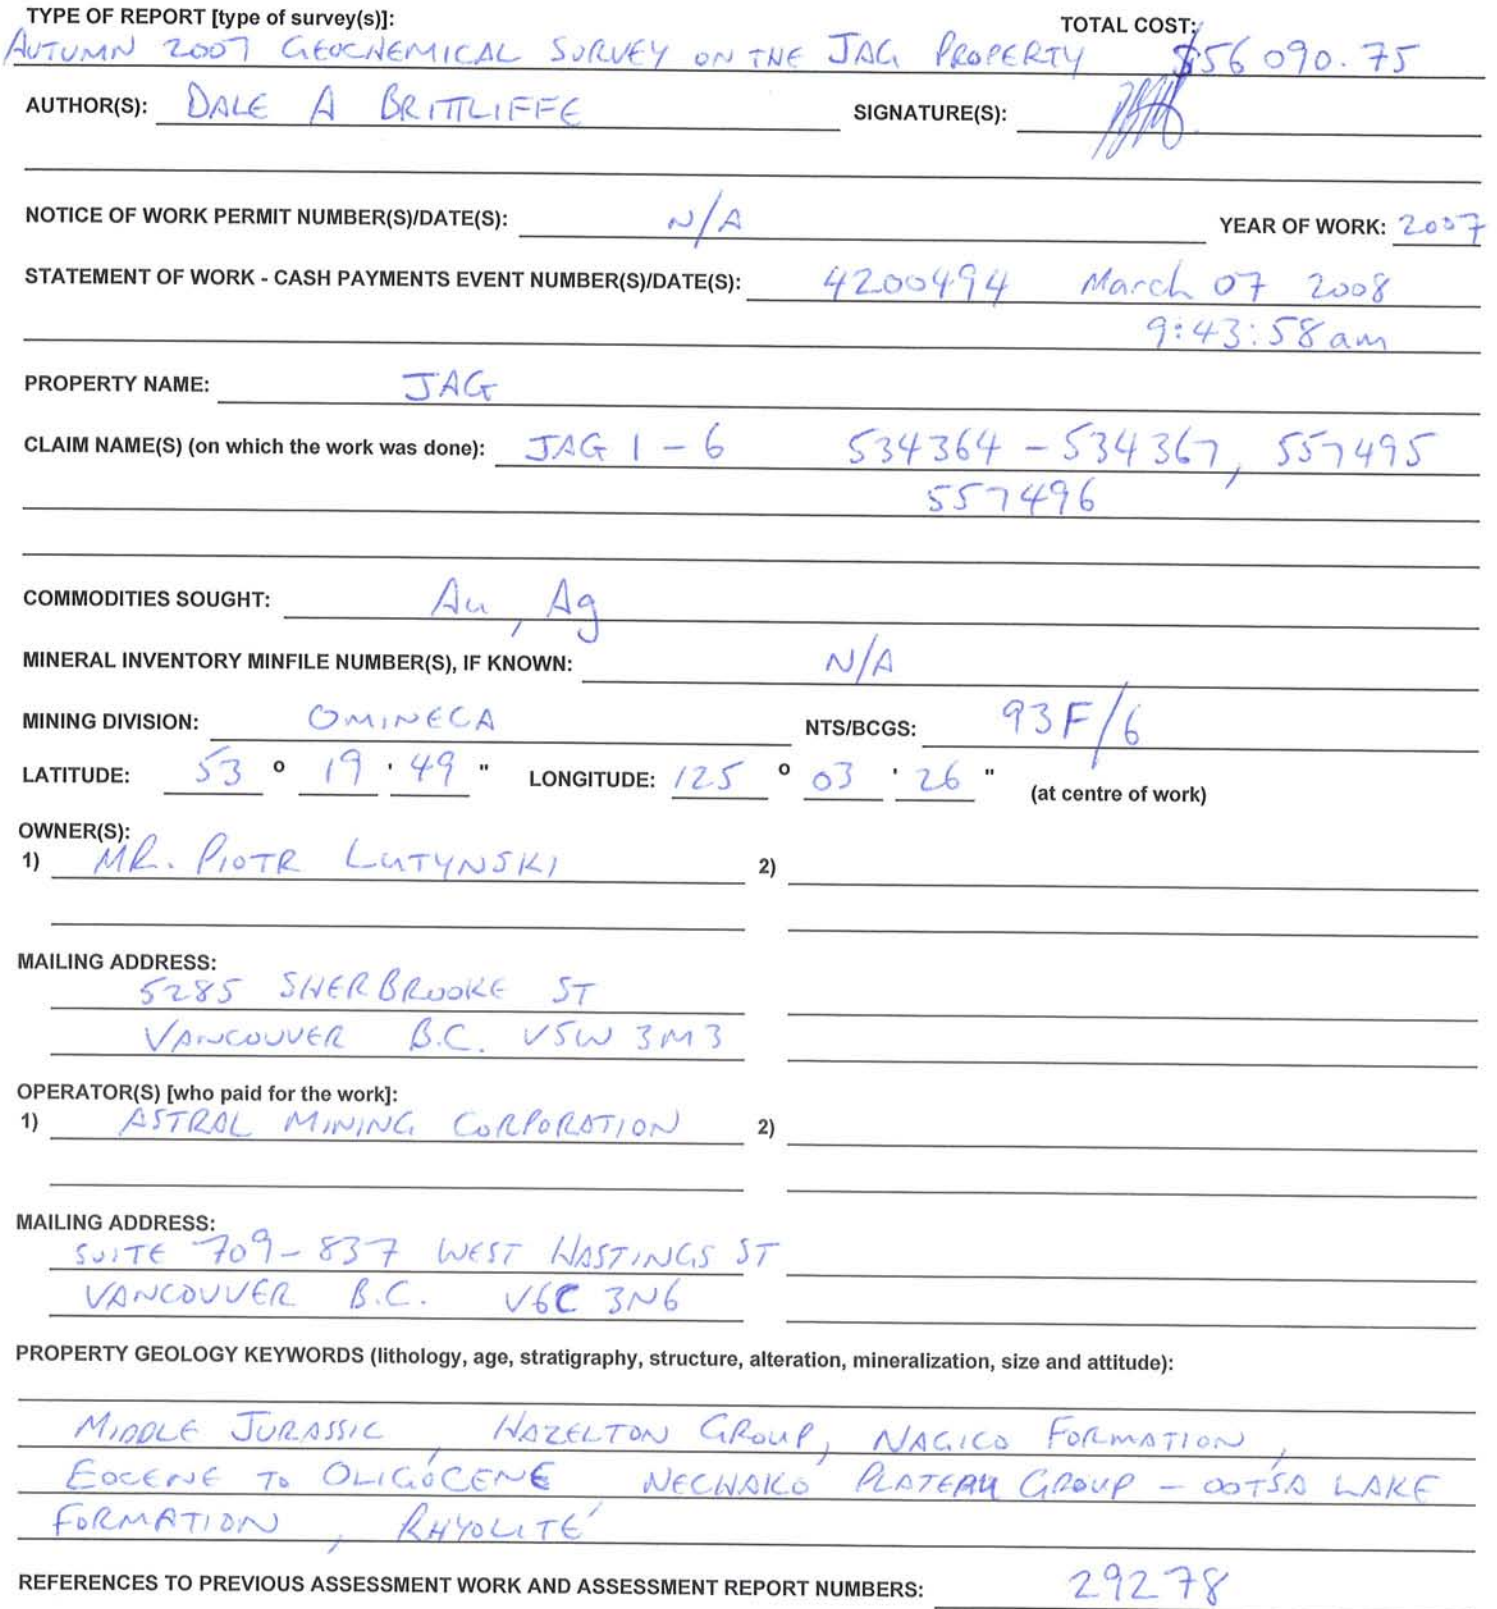 TYPE OF REPORT [type of survey(s)]: TOTAL COST:
AUTUMN 2007 GEOCHEMICAL SURVEY ON THE JAG PROPERTY $56 090.75
AUTHOR(S): DALE A BRITTLIFFE SIGNATURE(S):
NOTICE OF WORK PERMIT NUMBER(S)/DATE(S): N/A YEAR OF WORK: 2007
STATEMENT OF WORK - CASH PAYMENTS EVENT NUMBER(S)/DATE(S): 4200494 March 07 2008
9:43:58am
PROPERTY NAME: JAG
CLAIM NAME(S) (on which the work was done): JAG 1 - 6 534364 - 534367, 557495
557496
COMMODITIES SOUGHT: Au, Ag
MINERAL INVENTORY MINFILE NUMBER(S), IF KNOWN: N/A
MINING DIVISION: OMINECA NTS/BCGS: 93F/6
LATITUDE: 53 ° 19 ' 49 " LONGITUDE: 125 ° 03 ' 26 " (at centre of work)
OWNER(S):
1) MR. PIOTR LUTYNSKI 2)
MAILING ADDRESS:
5285 SHERBROOKE ST
VANCOUVER B.C. V5W 3M3
OPERATOR(S) [who paid for the work]:
1) ASTRAL MINING CORPORATION 2)
MAILING ADDRESS:
SUITE 709-837 WEST HASTINGS ST
VANCOUVER B.C. V6C 3N6
PROPERTY GEOLOGY KEYWORDS (lithology, age, stratigraphy, structure, alteration, mineralization, size and attitude):
MIDDLE JURASSIC, HAZELTON GROUP, NAGICO FORMATION,
EOCENE TO OLIGOCENE NECHAKO PLATEAU GROUP - OOTSA LAKE
FORMATION, RHYOLITE
REFERENCES TO PREVIOUS ASSESSMENT WORK AND ASSESSMENT REPORT NUMBERS: 29278